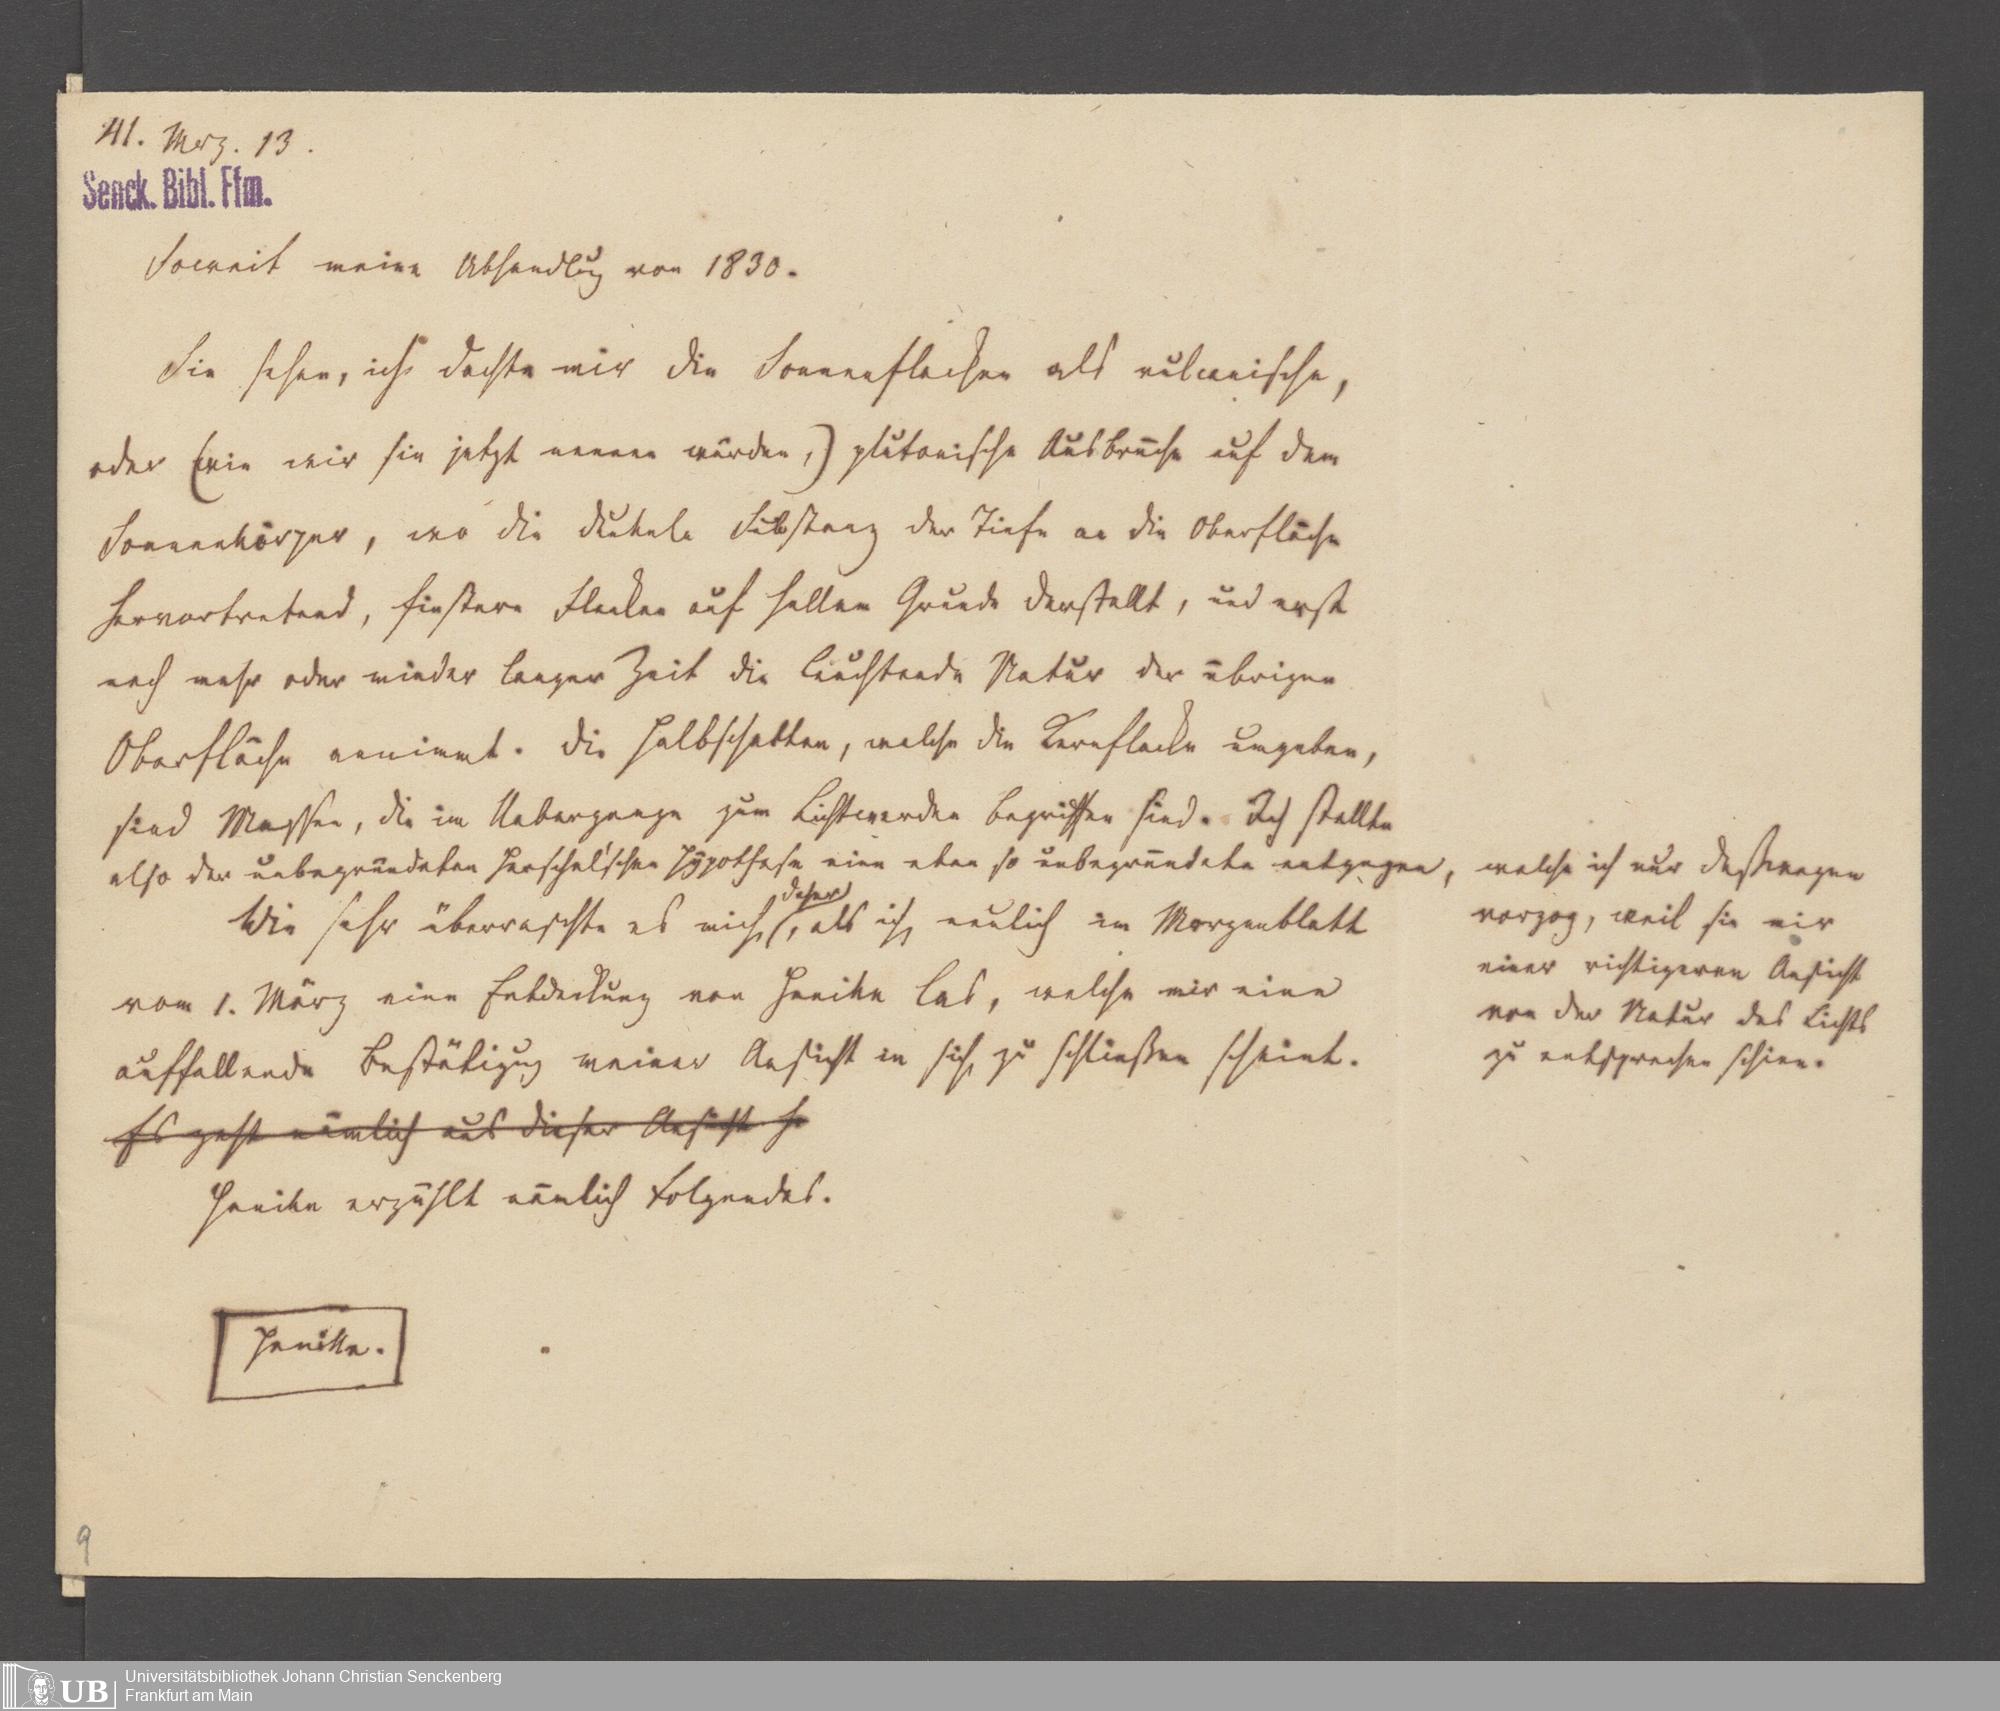 41. Merz. 13.
Senck. Bibl. Ffm.
Soweit meine Abhandlug von 1830.
Sie sehen, ich dachte mir die Sonnenflecken als vulcanische,
oder (wie wir sie jetzt nennen würden,) plutonische Ausbrüche auf dem
Sonnenkörper, wo die dunkele Substanz der Tiefe an die Oberfläche
hervortretend, finstere Flecken auf hellem Grunde darstellt, und erst
nach mehr oder minder langer Zeit die leuchtende Natur der übrigen
Oberfläche annimmt. Die Halbschatten, welche die Kernflecke umgeben,
sind Massen, die im Uebergange zum Lichtwerden begriffen sind. Ich stellte
also der unbegründeten Herschel'schen Hypothese eine eben so unbegründete entgegen, welche ich nur deßwegen
vorzog, weil sie mir
einer richtigeren Ansicht
von der Natur des Lichts
zu entsprechen schien.
Wie sehr überraschte es mich daher, als ich neulich im Morgenblatt
vom 1. März eine Entdeckung von Henike las, welche mir eine
auffallende Bestätigug meiner Ansicht in sich zu schließen scheint.
Es geht nämlich aus dieser Ansicht he
Henike erzählt nämlich Folgendes.
Henike.
9
UB
Universitätsbibliothek Johann Christian Senckenberg
Frankfurt am Main